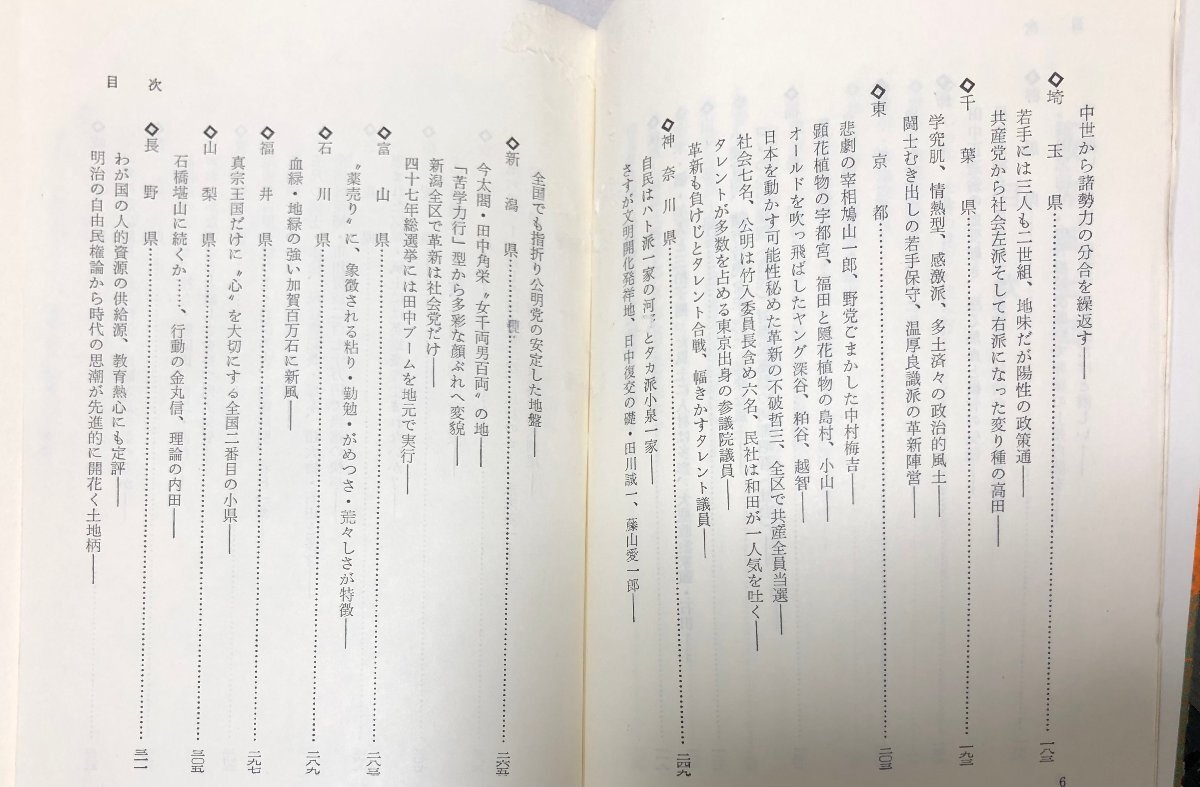 中世から諸勢力の分合を繰返す――
◇埼玉県…………一八三
若手には三人も二世組、地味だが陽性の政策通――
共産党から社会左派そして右派になった変り種の高田――
◇千葉県…………一九三
学究肌、情熱型、感激派、多士済々の政治的風土――
闘士むき出しの若手保守、温厚良識派の革新陣営――
◇東京都…………二〇三
悲劇の宰相鳩山一郎、野党ごまかした中村梅吉――
顕花植物の宇都宮、福田と隠花植物の島村、小山――
オールドを吹っ飛ばしたヤング深谷、粕谷、越智――
日本を動かす可能性秘めた革新の不破哲三、全区で共産全員当選――
社会七名、公明は竹入委員長含め六名、民社は和田が一人気を吐く――
タレントが多数を占める東京出身の参議院議員――
革新も負けじとタレント合戦、幅きかすタレント議員――
◇神奈川県…………二四九
自民はハト派一家の河野とタカ派小泉一家――
さすが文明開化発祥地、日中復交の礎・田川誠一、藤山愛一郎――
6
◇新潟県…………二六五
全国でも指折り公明党の安定した地盤――
今太閤・田中角栄〝女千両男百両〟の地――
「苦学力行」型から多彩な顔ぶれへ変貌――
新潟全区で革新は社会党だけ――
四十七年総選挙には田中ブームを地元で実行――
◇富山県…………二八三
〝薬売り〟に、象徴される粘り・勤勉・がめつさ・荒々しさが特徴――
◇石川県…………二八九
血緑・地緑の強い加賀百万石に新風――
◇福井県…………二九七
真宗王国だけに〝心〟を大切にする全国二番目の小県――
◇山梨県…………三〇五
石橋堪山に続くか……、行動の金丸信、理論の内田――
◇長野県…………三一一
わが国の人的資源の供給源、教育熱心にも定評――
明治の自由民権論から時代の思潮が先進的に開花く土地柄――
目次